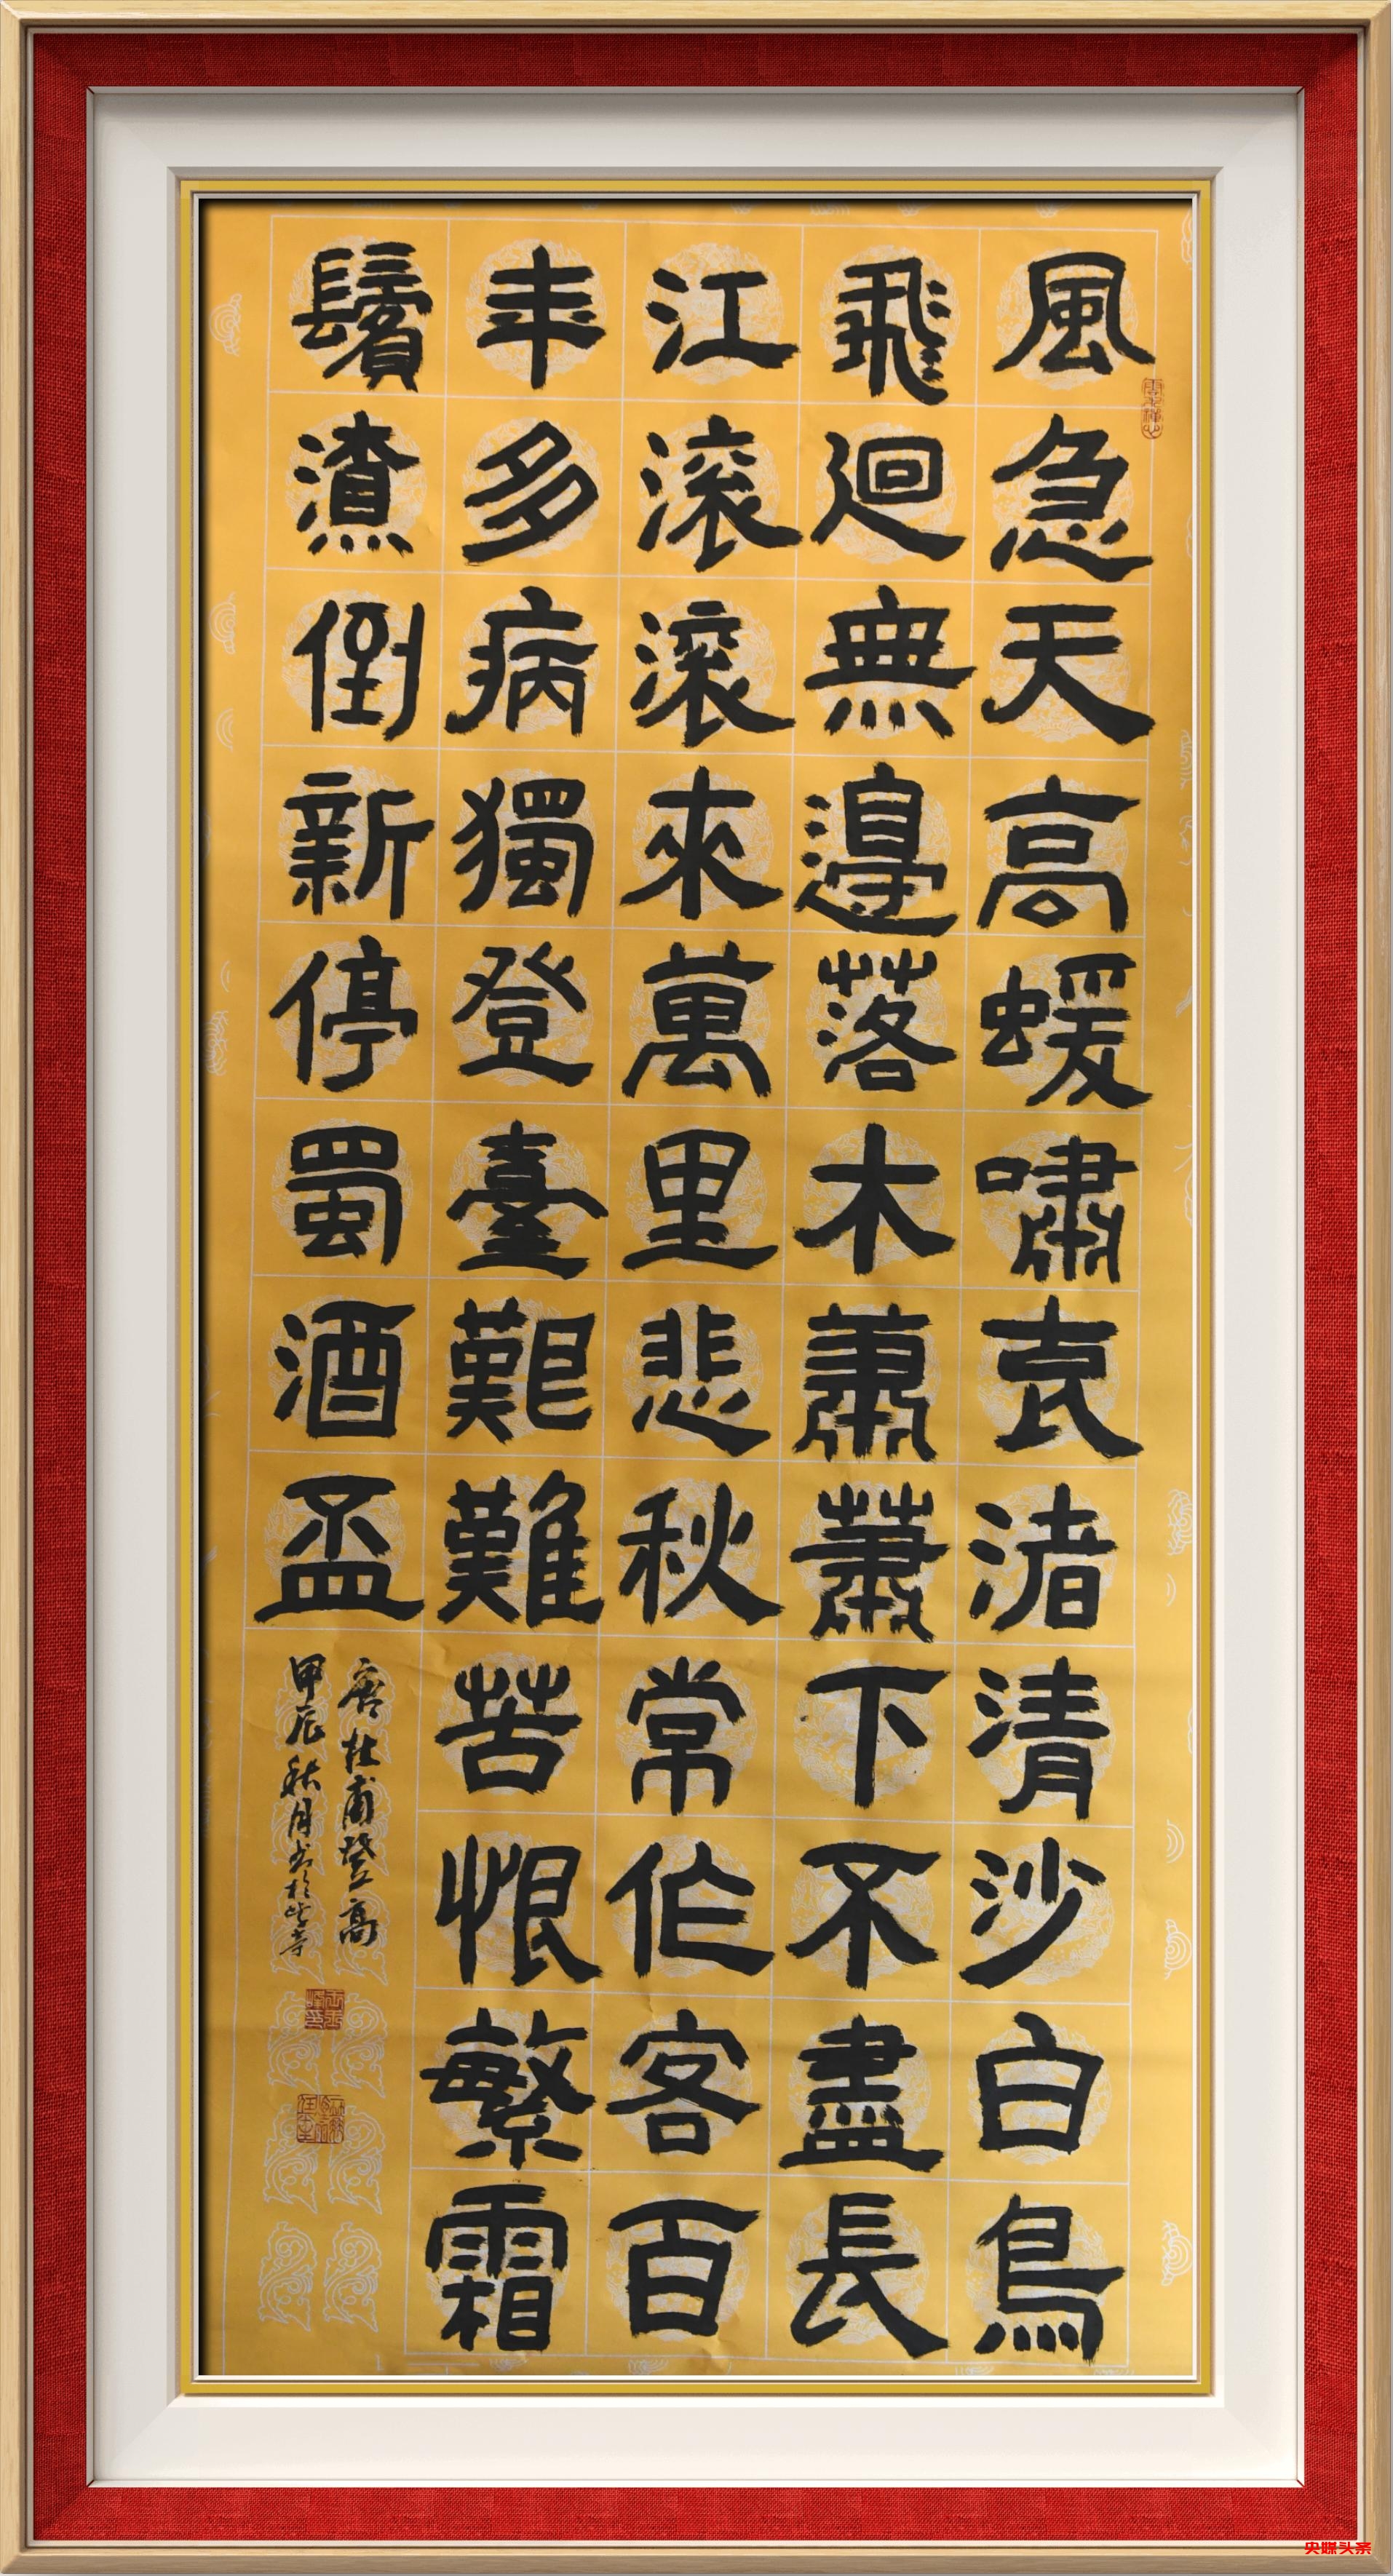 風急天高蝯嘯哀渚清沙白鳥
飛迴無邉落木蕭蕭下不盡長
江滚滚來萬里悲秋常作客百
年多病獨登臺艱難苦恨繁霜
鬢潦倒新停蜀酒盃
唐杜甫登高
甲辰秋月书於
央媒头条